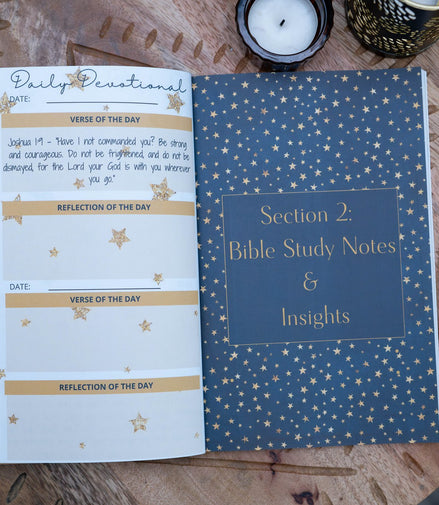 Daily Devotional
DATE:
VERSE OF THE DAY
Joshua 1:9 - "Have I not commanded you? Be strong
and courageous. Do not be frightened, and do not be
dismayed, for the Lord your God is with you wherever
you go."
REFLECTION OF THE DAY
DATE:
VERSE OF THE DAY
REFLECTION OF THE DAY
Section 2:
Bible Study Notes
&
Insights